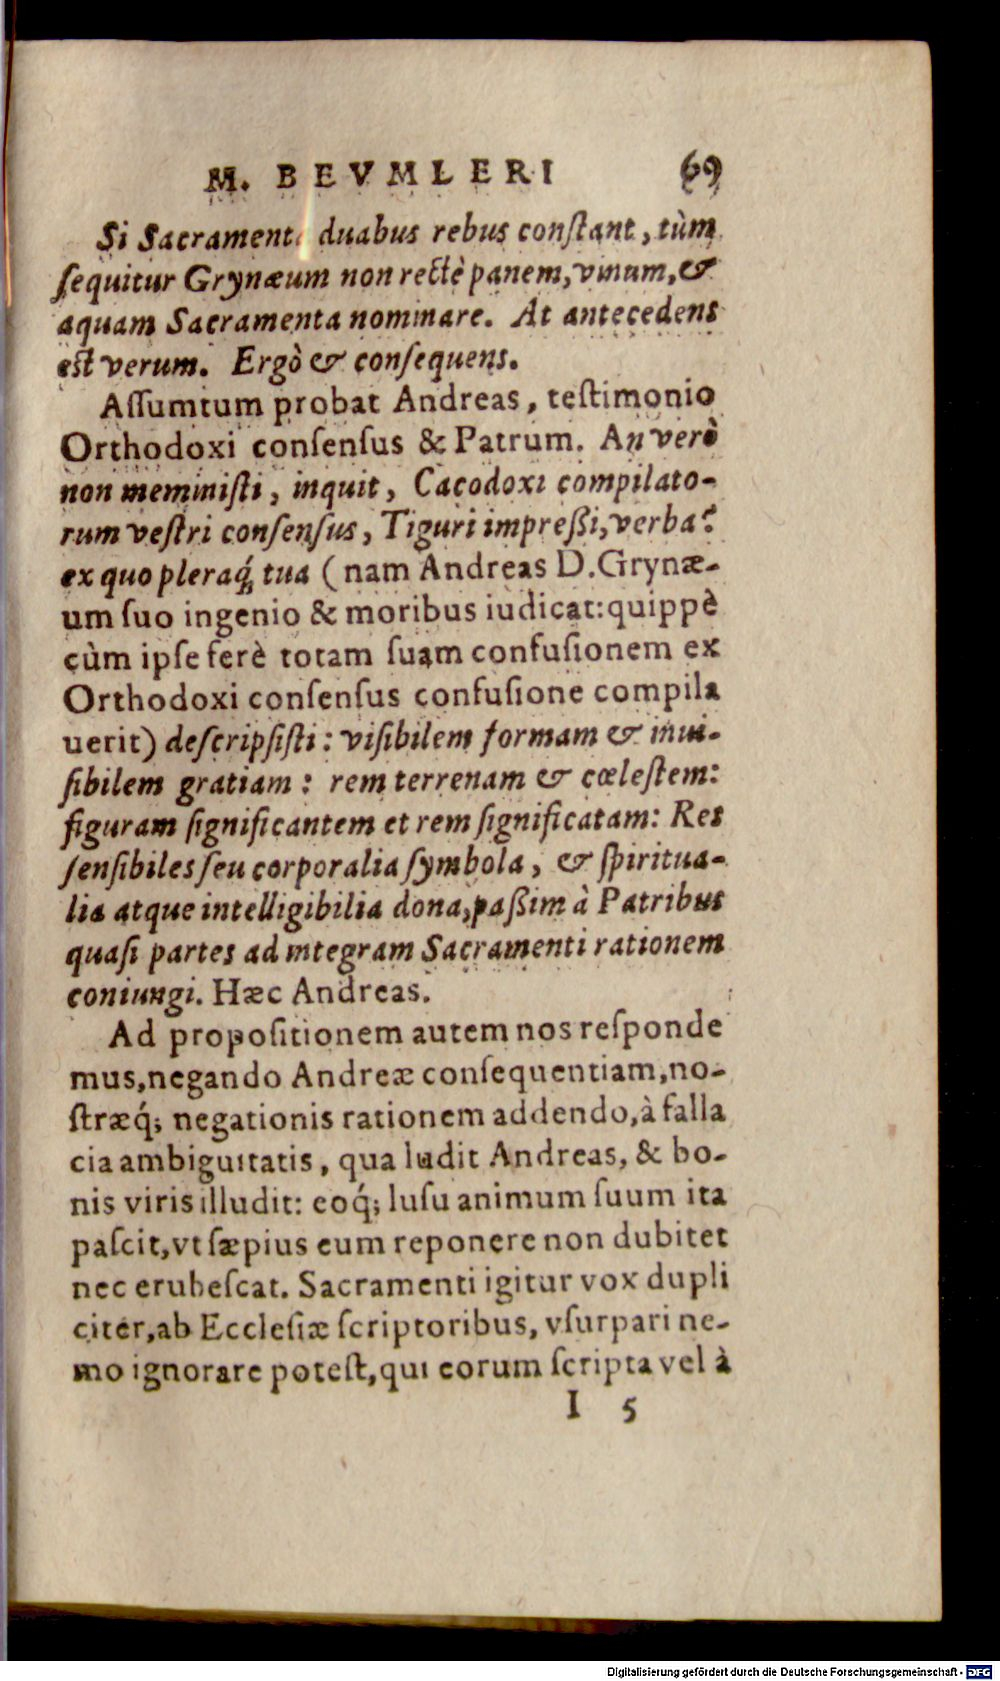 M. BEVMLERI 69
Si Sacrament duabus rebus conſtant, tùm
ſequitur Grynæum non rectè panem, vinum, &
aquam Sacramenta nominare. At antecedens
est verum. Ergò & conſequens.
Aſſumtum probat Andreas, teſtimonio
Orthodoxi conſenſus & Patrum. An verò
non meminiſti, inquit, Cacodoxi compilato-
rum veſtri conſenſus, Tiguri impreßi, verba?
ex quo pleraq́; tua (nam Andreas D. Grynæ-
um ſuo ingenio & moribus iudicat: quippè
cùm ipſe ferè totam ſuam confuſionem ex
Orthodoxi conſenſus confuſione compila
uerit) deſcripſiſti: viſibilem formam & inui-
ſibilem gratiam: rem terrenam & cœleſtem:
figuram ſignificantem et rem ſignificatam: Res
ſenſibiles ſeu corporalia ſymbola, & ſpiritua-
lia atque intelligibilia dona, paßim à Patribus
quaſi partes ad integram Sacramenti rationem
coniungi. Hæc Andreas.
Ad propoſitionem autem nos reſponde
mus, negando Andreæ conſequentiam, no-
ſtræq́; negationis rationem addendo, à falla
cia ambiguitatis, qua ludit Andreas, & bo-
nis viris illudit: eoq́; luſu animum ſuum ita
paſcit, vt ſæpius eum reponere non dubitet
nec erubeſcat. Sacramenti igitur vox dupli
citer, ab Eccleſiæ ſcriptoribus, vſurpari ne-
mo ignorare poteſt, qui eorum ſcripta vel à
I 5
Digitalisierung gefördert durch die Deutsche Forschungsgemeinschaft - DFG